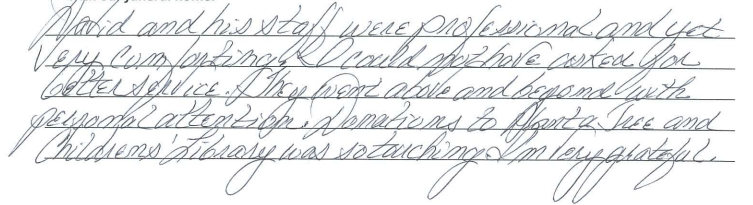 David and his staff were professional and yet
very comforting. I could not have asked for
better service. They went above and beyond with
personal attention. Donations to Plant a Tree and
Childrens' Library was so touching. I'm very grateful.